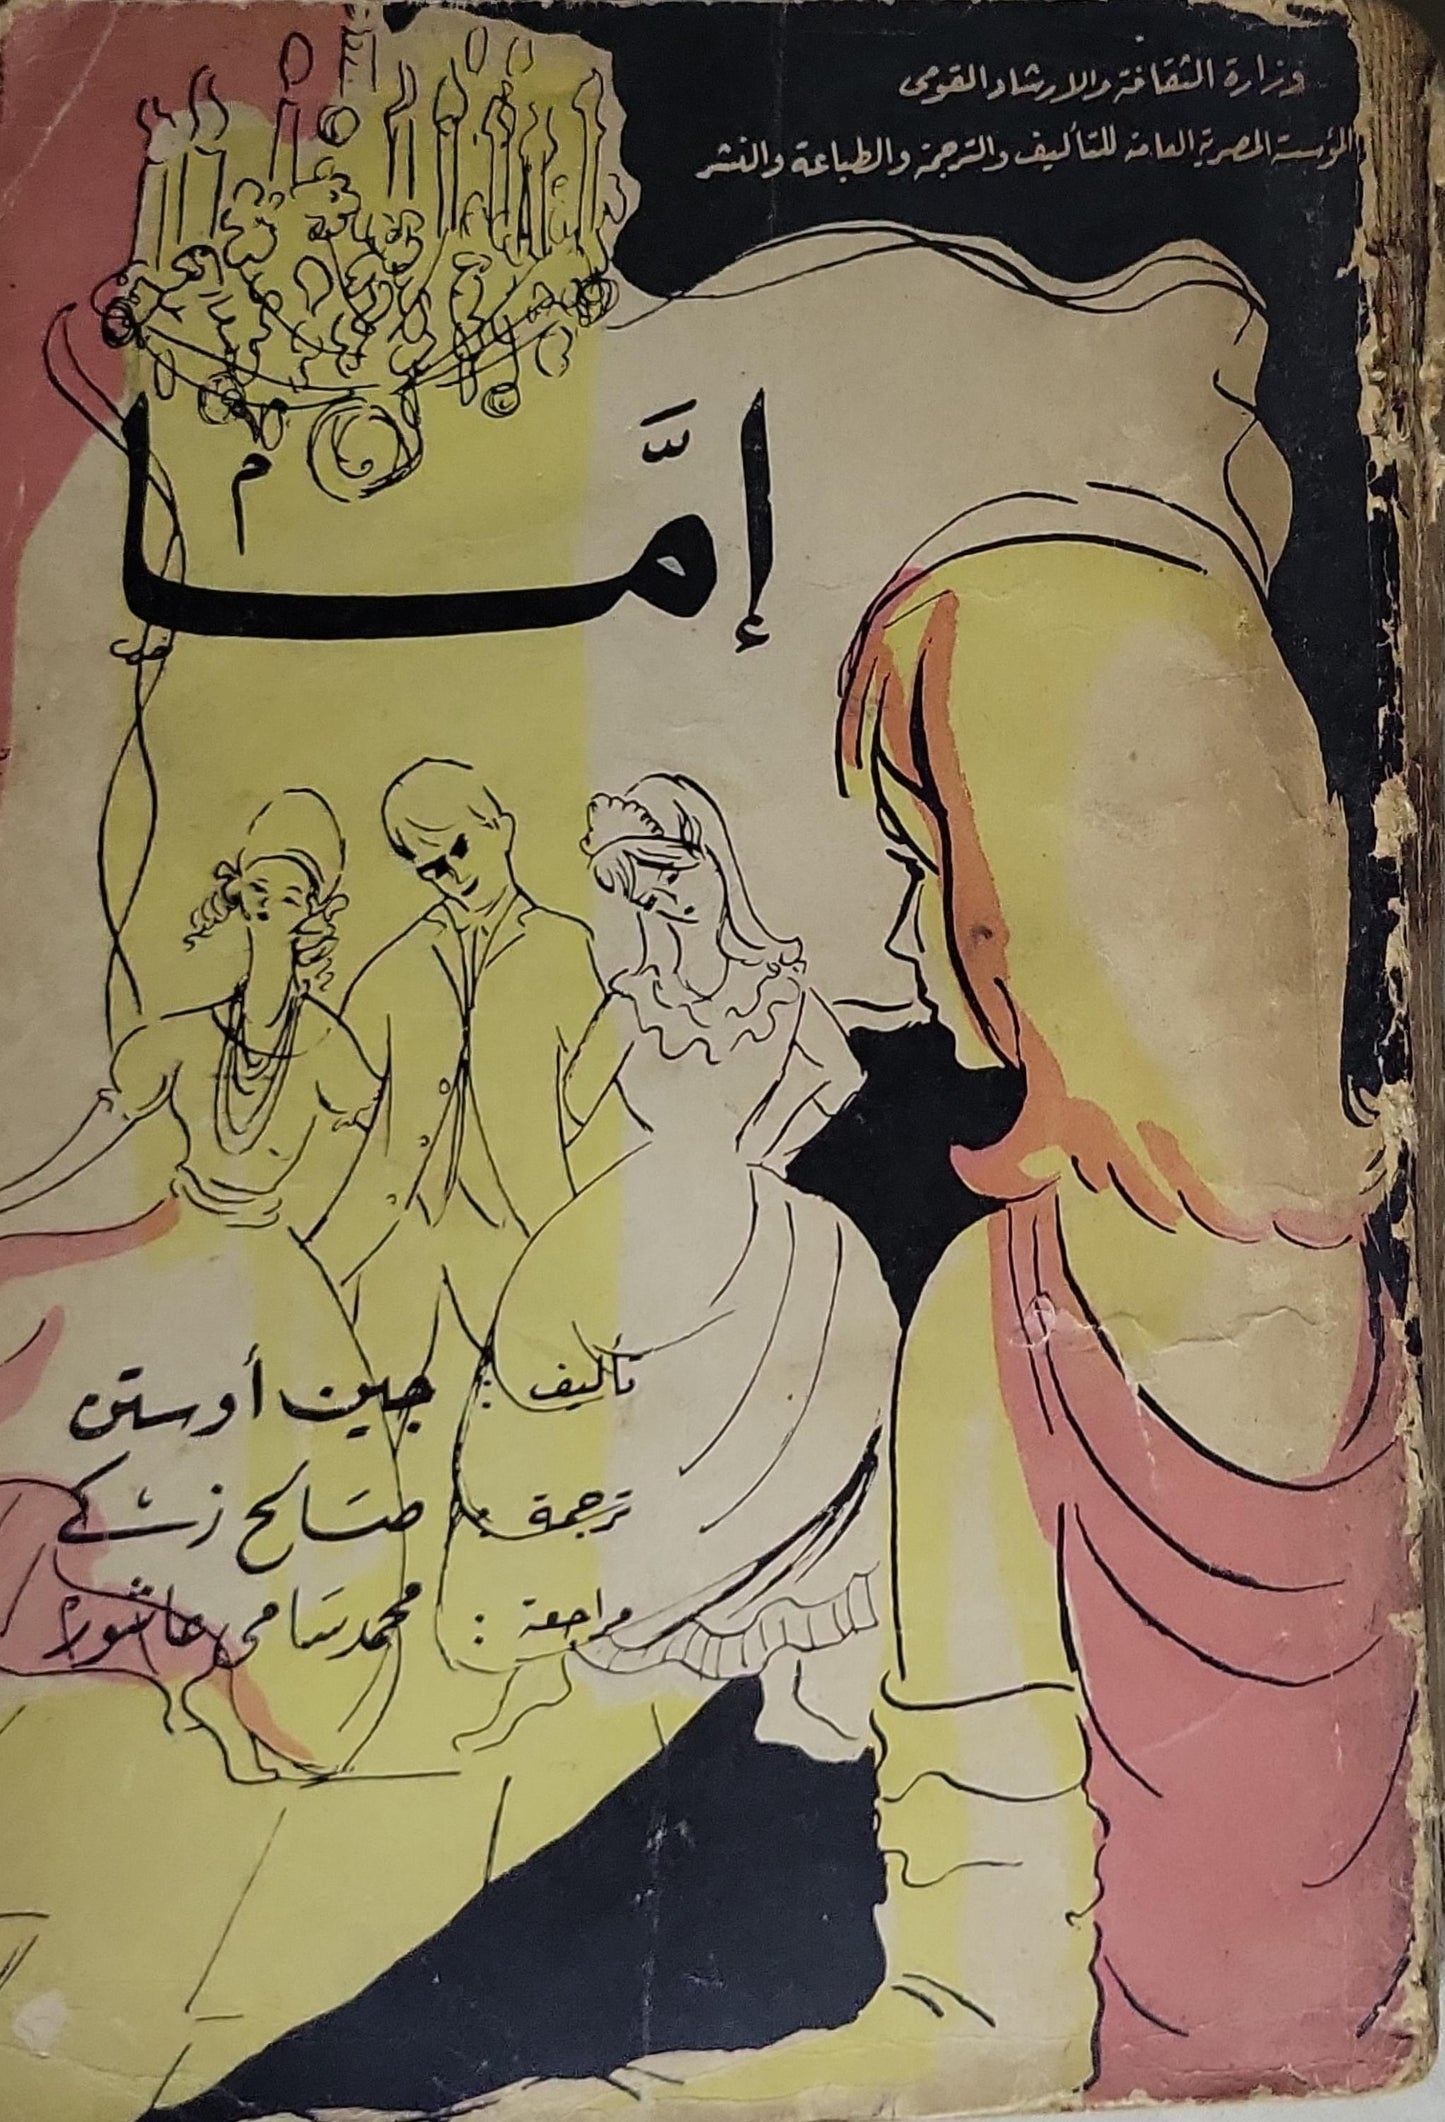 وزارة الثقافة والارشاد القومى
المؤسسة المصرية العامة للتأليف والترجمة والطباعة والنشر
إمَّا
تأليف : جين أوستن
ترجمة : صَالح زكى
مراجعة : محمد سَامى عاشور